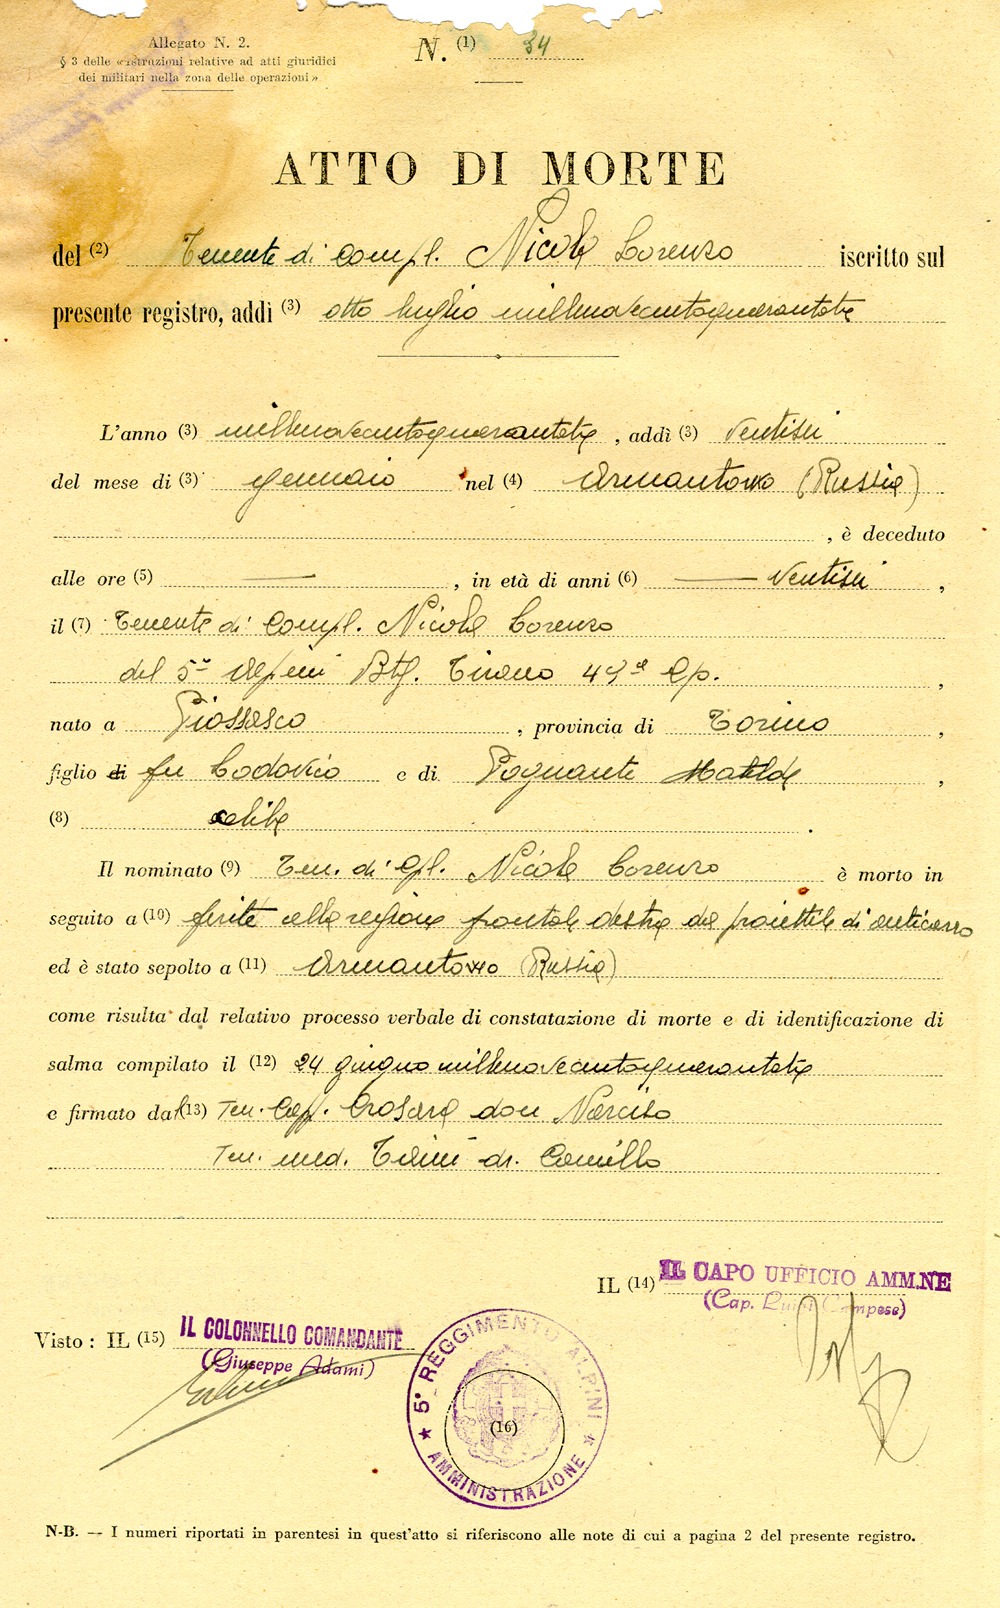 Allegato N. 2.
§ 3 delle «istruzioni relative ad atti giuridici
dei militari nella zona delle operazioni»
N. (1) 34
ATTO DI MORTE
del (2) Tenente di compl. Nicola Lorenzo iscritto sul
presente registro, addì (3) otto luglio millenovecentoquarantatre
L'anno (3) millenovecentoquarantatre, addì (3) ventisei
del mese di (3) gennaio nel (4) Arnautowo (Russia)
, è deceduto
alle ore (5) —, in età di anni (6) — ventisei,
il (7) Tenente di Compl. Nicola Lorenzo
del 5° Alpini Btg. Tirano 49ª Cp.,
nato a Piossasco, provincia di Torino,
figlio di fu Lodovico e di Pognante Matilde,
(8) celibe.
Il nominato (9) Ten. di Cpl. Nicola Lorenzo è morto in
seguito a (10) ferite alla regione frontale destra da proiettile di anticarro
ed è stato sepolto a (11) Arnautowo (Russia)
come risulta dal relativo processo verbale di constatazione di morte e di identificazione di
salma compilato il (12) 24 giugno millenovecentoquarantatre
e firmato dal (13) Ten. Capp. Crosara don Narciso
Ten. med. Taini dr. Camillo
IL (14) IL CAPO UFFICIO AMM.NE
(Cap. Luigi Campese)
Visto : IL (15) IL COLONNELLO COMANDANTE
(Giuseppe Adami)
5° REGGIMENTO ALPINI
(16)
★ AMMINISTRAZIONE ★
N-B. — I numeri riportati in parentesi in quest'atto si riferiscono alle note di cui a pagina 2 del presente registro.